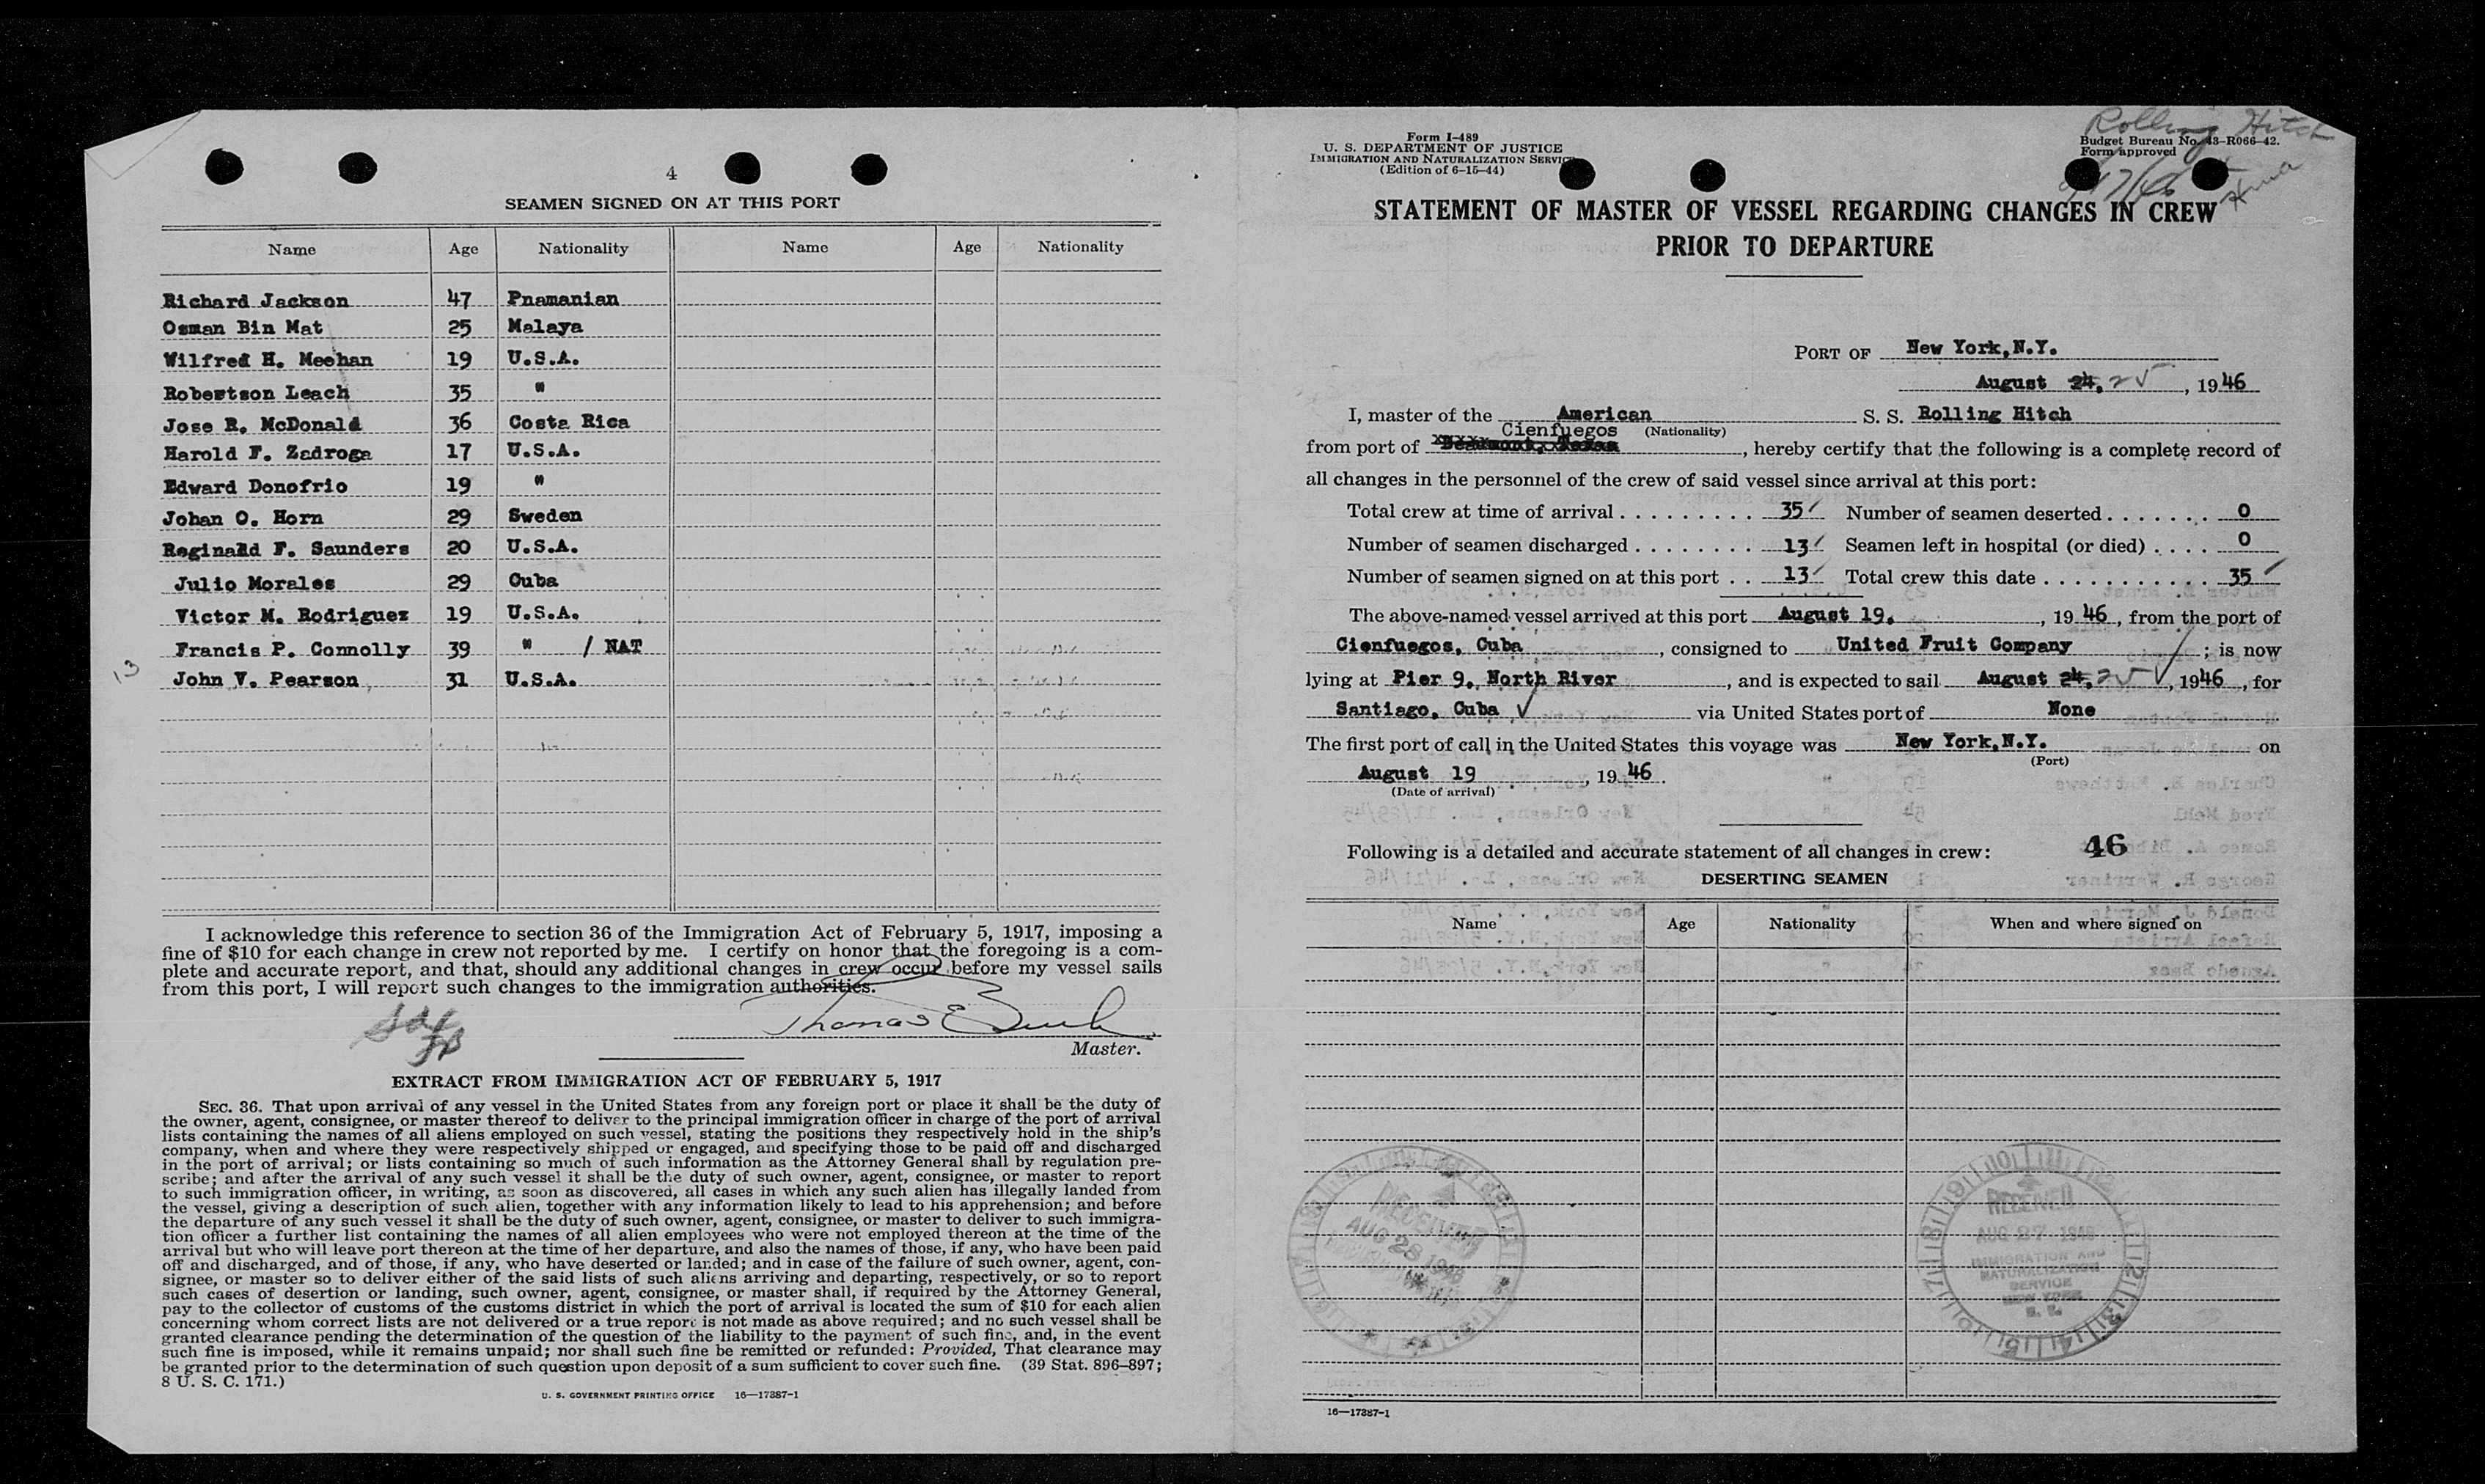 4
SEAMEN SIGNED ON AT THIS PORT
Name Age Nationality Name Age Nationality
Richard Jackson 47 Pnamanian
Osman Bin Mat 25 Malaya
Wilfred H. Meehan 19 U.S.A.
Robertson Leach 35 "
Jose R. McDonald 36 Costa Rica
Harold F. Zadroga 17 U.S.A.
Edward Donofrio 19 "
Johan O. Horn 29 Sweden
Reginald F. Saunders 20 U.S.A.
Julio Morales 29 Cuba
Victor M. Rodriguez 19 U.S.A.
Francis P. Connolly 39 " / NAT
13 John V. Pearson 31 U.S.A.
I acknowledge this reference to section 36 of the Immigration Act of February 5, 1917, imposing a
fine of $10 for each change in crew not reported by me. I certify on honor that the foregoing is a com-
plete and accurate report, and that, should any additional changes in crew occur before my vessel sails
from this port, I will report such changes to the immigration authorities.
Thomas E
Master.
EXTRACT FROM IMMIGRATION ACT OF FEBRUARY 5, 1917
SEC. 36. That upon arrival of any vessel in the United States from any foreign port or place it shall be the duty of
the owner, agent, consignee, or master thereof to deliver to the principal immigration officer in charge of the port of arrival
lists containing the names of all aliens employed on such vessel, stating the positions they respectively hold in the ship's
company, when and where they were respectively shipped or engaged, and specifying those to be paid off and discharged
in the port of arrival; or lists containing so much of such information as the Attorney General shall by regulation pre-
scribe; and after the arrival of any such vessel it shall be the duty of such owner, agent, consignee, or master to report
to such immigration officer, in writing, as soon as discovered, all cases in which any such alien has illegally landed from
the vessel, giving a description of such alien, together with any information likely to lead to his apprehension; and before
the departure of any such vessel it shall be the duty of such owner, agent, consignee, or master to deliver to such immigra-
tion officer a further list containing the names of all alien employees who were not employed thereon at the time of the
arrival but who will leave port thereon at the time of her departure, and also the names of those, if any, who have been paid
off and discharged, and of those, if any, who have deserted or landed; and in case of the failure of such owner, agent, con-
signee, or master so to deliver either of the said lists of such aliens arriving and departing, respectively, or so to report
such cases of desertion or landing, such owner, agent, consignee, or master shall, if required by the Attorney General,
pay to the collector of customs of the customs district in which the port of arrival is located the sum of $10 for each alien
concerning whom correct lists are not delivered or a true report is not made as above required; and no such vessel shall be
granted clearance pending the determination of the question of the liability to the payment of such fine, and, in the event
such fine is imposed, while it remains unpaid; nor shall such fine be remitted or refunded: Provided, That clearance may
be granted prior to the determination of such question upon deposit of a sum sufficient to cover such fine. (39 Stat. 896–897;
8 U. S. C. 171.)
U. S. GOVERNMENT PRINTING OFFICE 16—17387-1
Form I-489
U. S. DEPARTMENT OF JUSTICE
IMMIGRATION AND NATURALIZATION SERVICE
(Edition of 6-15-44)
Rolling Hitch
Budget Bureau No. 43-R066-42.
Form approved
STATEMENT OF MASTER OF VESSEL REGARDING CHANGES IN CREW
PRIOR TO DEPARTURE
PORT OF New York,N.Y.
August 24, 25, 1946
I, master of the American S. S. Rolling Hitch
Cienfuegos (Nationality)
from port of Beaumont, Texas, hereby certify that the following is a complete record of
all changes in the personnel of the crew of said vessel since arrival at this port:
Total crew at time of arrival . . . . . . . . . . 35 Number of seamen deserted . . . . . . . 0
Number of seamen discharged . . . . . . . . 13 Seamen left in hospital (or died) . . . . 0
Number of seamen signed on at this port . . 13 Total crew this date . . . . . . . . . . . . 35
The above-named vessel arrived at this port August 19, , 1946, from the port of
Cienfuegos, Cuba, consigned to United Fruit Company ; is now
lying at Pier 9, North River, and is expected to sail August 24, 25, 1946, for
Santiago, Cuba ✓ via United States port of None
The first port of call in the United States this voyage was New York,N.Y. on
(Port)
August 19, 1946.
(Date of arrival)
46
Following is a detailed and accurate statement of all changes in crew:
DESERTING SEAMEN
Name Age Nationality When and where signed on
RECEIVED
AUG 28 1946
RECEIVED
AUG 27 1946
IMMIGRATION AND
NATURALIZATION
SERVICE
NEW YORK
N. Y.
16—17387-1